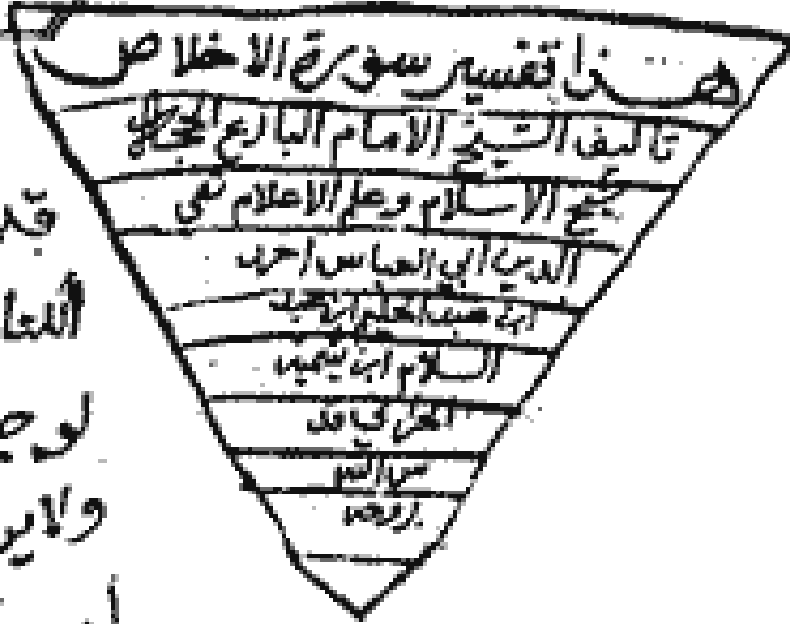 هذا تفسير سورة الاخلاص
تاليف الشيخ الامام البارع
شيخ الاسلام وعلم الاعلام تقي
الدين ابي العباس احمد
ابن عبد الحليم ابن عبد
السلام ابن تيميه
الحراني قدس
الله
روحه
ولا